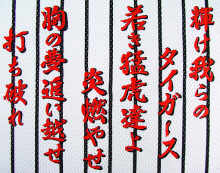 輝け我らの
タイガース
若き猛虎達よ
炎燃やせ
胸の夢追い越せ
打ち破れ